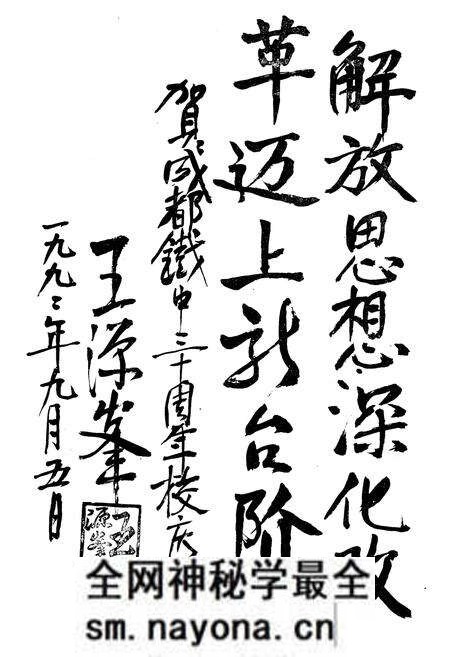 解放思想深化改
革迈上新台阶
賀成都鐵中三十周年校庆
王源峯
一九九二年九月五日
王源峯
全网神秘学最全
sm.nayona.cn